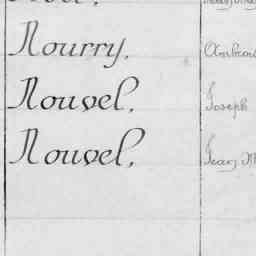 Nourry. Ambrois
Nouvel. Joseph
Nouvel. Jean, M